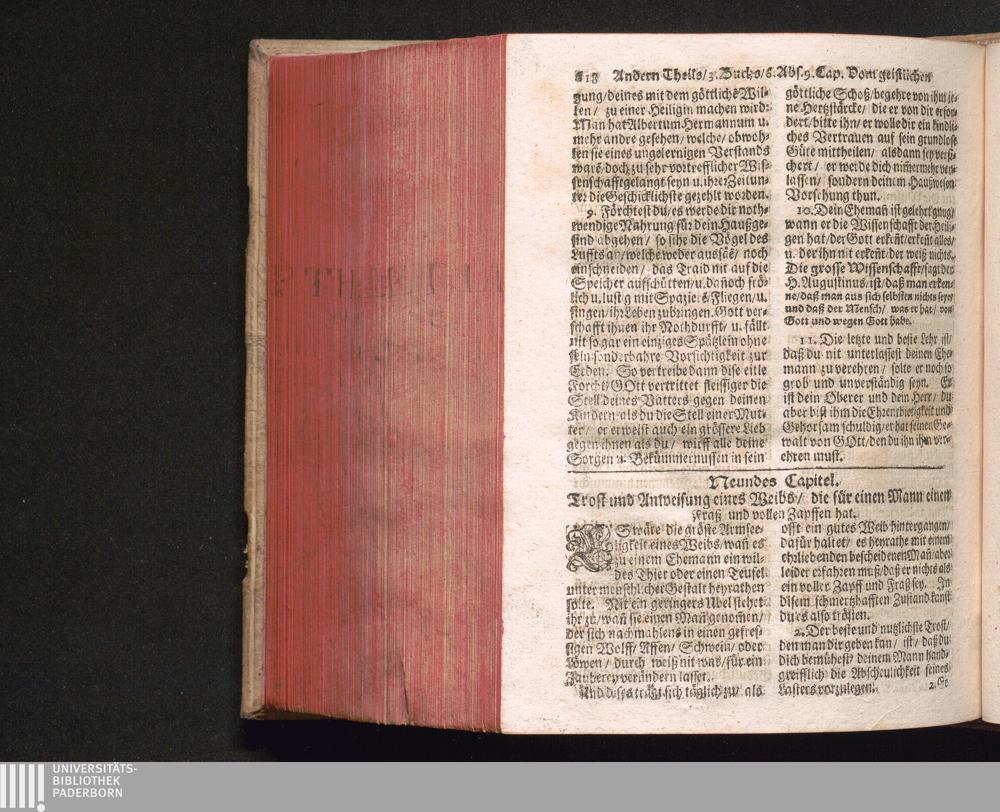 818 Andern Theils/ 3. Buchs/ 6. Abs. 9. Cap. Vom geistlichen
gung/ deines mit dem göttlichē Wil-
len/ zu einer Heiligin machen wird:
Man hat Albertum Hermannum u.
mehr andre gesehen/ welche/ obwoh-
len sie eines ungelernigen Verstands
warē/ doch zu sehr vortrefflicher Wis-
senschafft gelangt seyn u. ihrer Zeit un-
ter die Geschicklichste gezehlt worden.
9. Förchtest du/ es werde dir noth-
wendige Nahrung für dein Haußge-
sind abgehen/ so sihe die Vögel des
Luffts an/ welche weder aussäē/ noch
einschneiden/ das Traid nit auf die
Speicher aufschütten/ u. dañoch frö-
lich u. lustig mit Spazierē Fliegen/ u.
singen/ ihr Leben zubringen. Gott ver-
schafft ihnen ihr Nothdurfft/ u. fällt
nit so gar ein einziges Spätzlein ohne
sein sonderbahre Vorsichtigkeit zur
Erden. So vertreibe dann dise eitle
Forcht/ GOtt vertrittet fleissiger die
Stell deines Vatters gegen deinen
Kindern als du die Stell einer Mut-
ter/ er erweist auch ein grössere Lieb
gegen ihnen als du/ wirff alle deine
Sorgen u. Bekümmernussen in sein
göttliche Schoß/ begehre von ihm je-
ne Hertzstärcke/ die er von dir erfor-
dert/ bitte ihn/ er wolle dir ein kindli-
ches Vertrauen auf sein grundlose
Güte mittheilen/ alsdann sey versi-
chert/ er werde dich nim̃ermehr ver-
lassen/ sondern deinem Haußwesen
Vorsehung thun.
10. Dein Ehemañ ist gelehrt gnug/
wann er die Wissenschafft der Heili-
gen hat/ der Gott erkeñt/ erkeñt alles/
u. der ihn nit erkeñt/ der weiß nichts.
Die grosse Wissenschafft/ sagt der
H. Augustinus/ ist/ daß man erken-
ne/ daß man aus sich selbsten nichts seye
und daß der Mensch/ was er hat/ von
Gott und wegen Gott habe.
11. Die letzte und beste Lehr ist/
daß du nit unterlassest deinen Ehe-
mann zu verehren/ solte er noch so
grob und unverständig seyn. Er
ist dein Oberer und dein Herr/ du
aber bist ihm die Ehrentbietigkeit und
Gehorsam schuldig/ er hat seinen Ge-
walt von GOtt/ den du ihn ihm ver-
ehren must.
Neundes Capitel.
Trost und Anweisung eines Weibs/ die für einen Mann einen
Fraß und vollen Zapffen hat.
ES wäre die gröste Armsee-
ligkeit eines Weibs/ wañ es
zu einem Ehemann ein wil-
des Thier oder einen Teufel
unter menschlicher Gestalt heyrathen
solte. Mit ein geringers Ubel stehet
ihr zu/ wañ sie einen Mañ genom̃en/
der sich nachmahlens in einen gefres-
sigen Wolff/ Affen/ Schwein/ oder
Löwen/ durch weiß nit was/ für ein
Zauberey verändern lasset.
Und dises trägt sich täglich zu/ als
offt ein gutes Weib hintergangen/
dafür haltet/ es heyrathe mit einem
ehrliebenden bescheidenen Mañ/ aber
leider erfahren muß/ daß er nichts als
ein voller Zapff und Fraß sey. In
disem schmertzhafften Zustand kanst
du es also trösten.
2. Der beste und nutzlichste Trost/
den man dir geben kan/ ist/ daß du
dich bemühest/ deinem Mann hand-
greifflich die Abscheulichkeit seines
Lasters vorzulegen.
UNIVERSITÄTS-
BIBLIOTHEK
PADERBORN